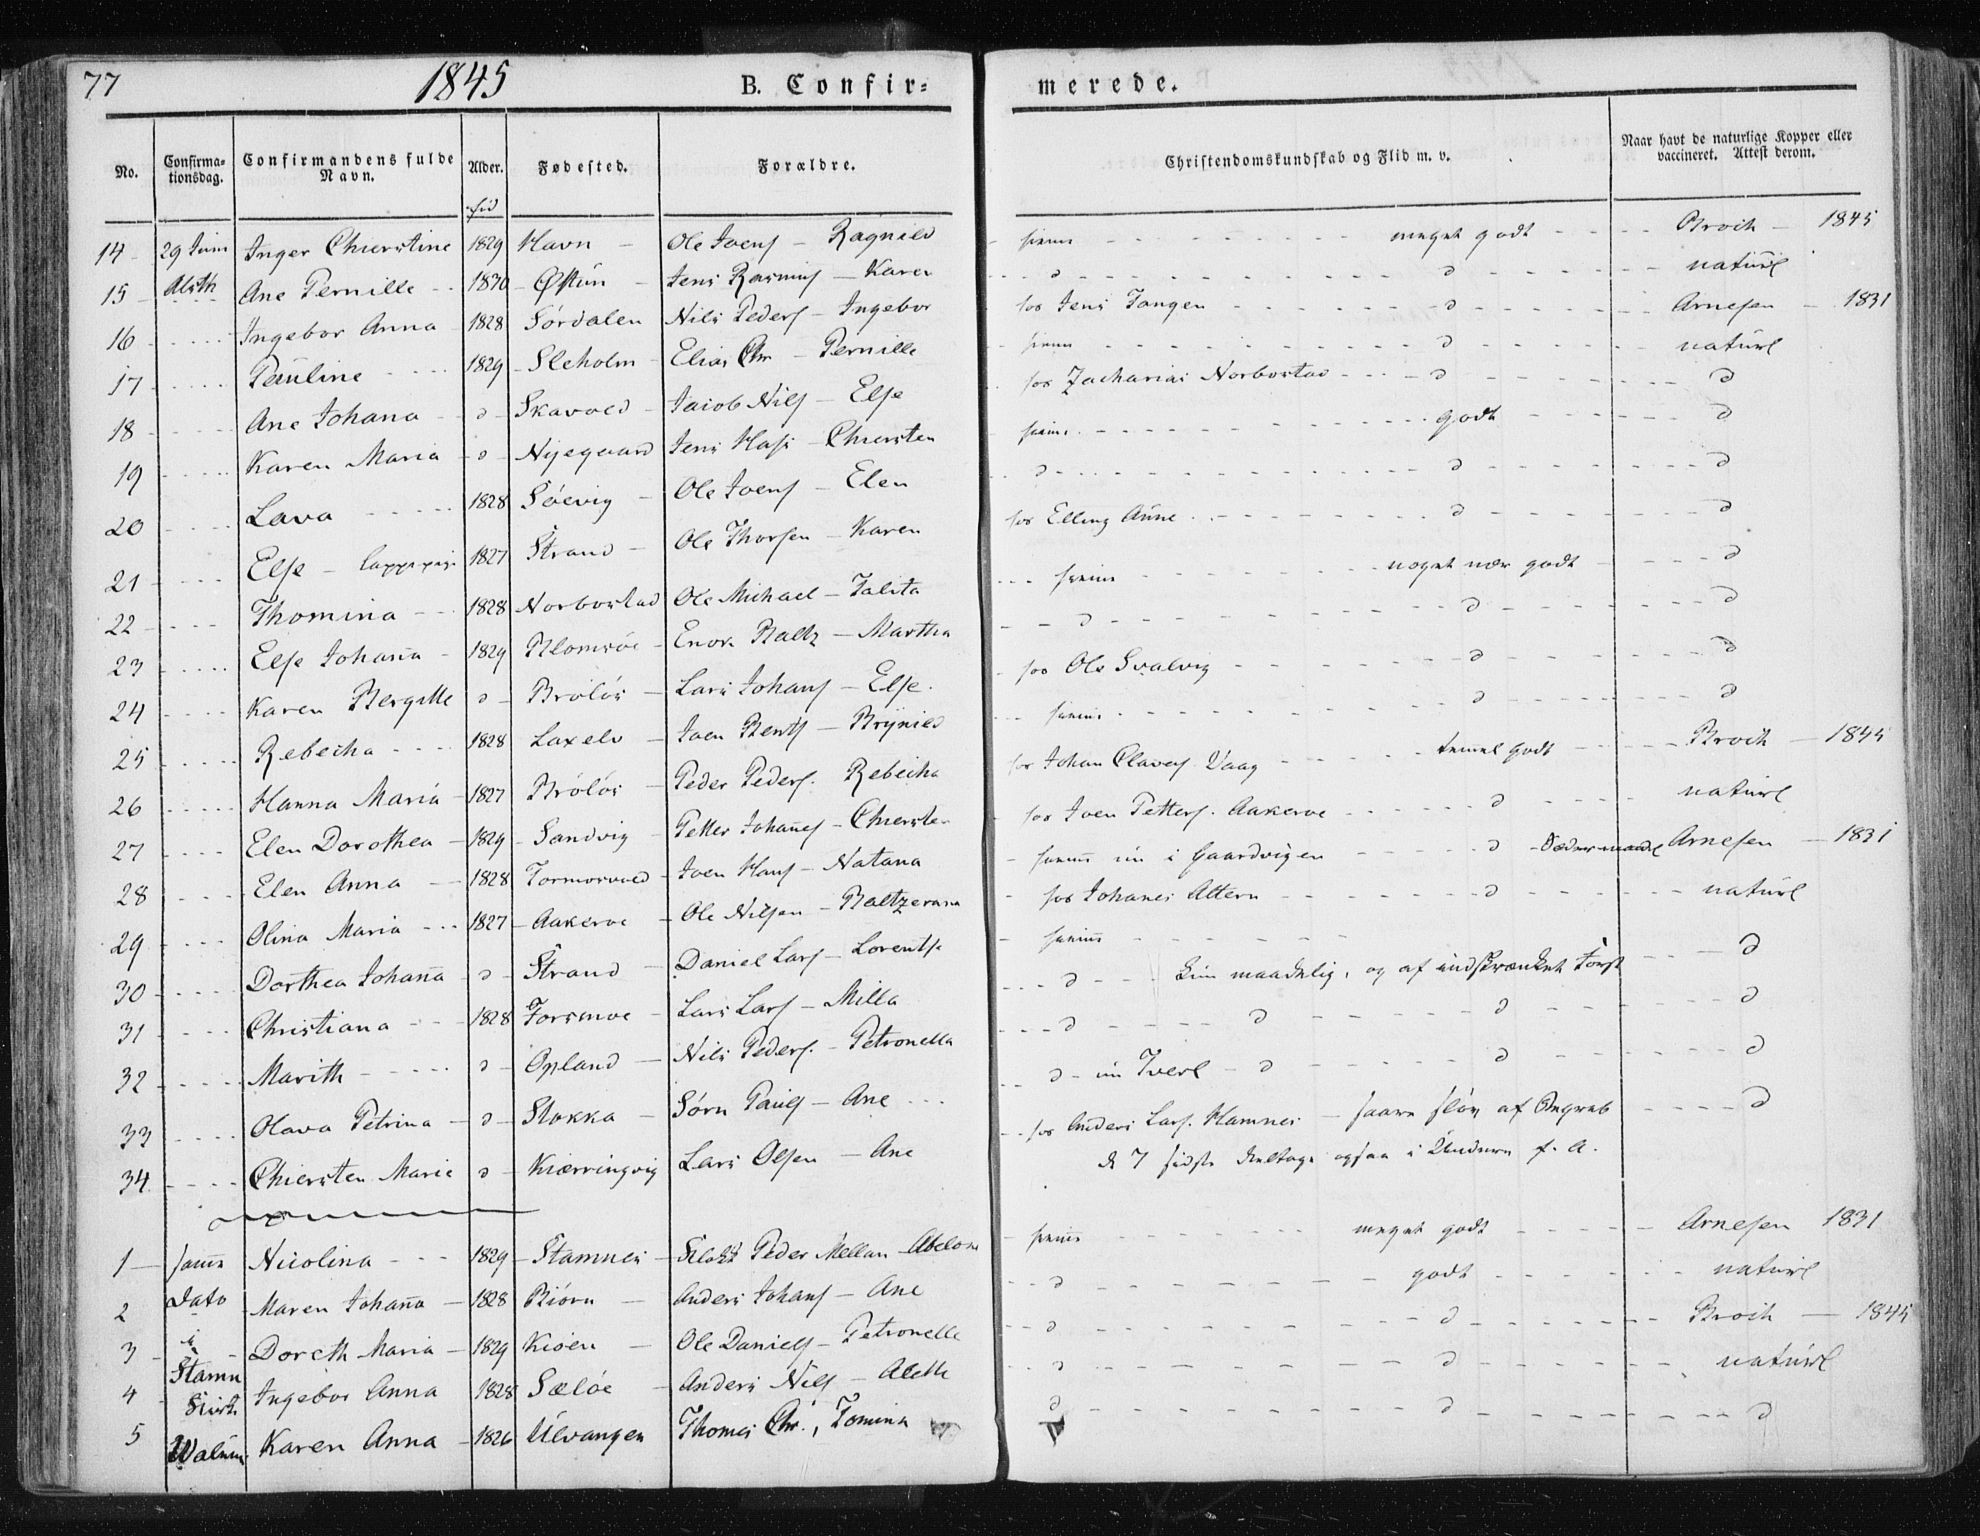 77 1845 B. Confirmerede.
No. Confirmationsdag. Confirmandens fulde Navn. Alder. Fødested. Forældre. Christendomskundskab og Flid m. v. Naar havt de naturlige Kopper eller vaccineret. Attest derom.
14 29 Juni Inger Chierstine 1829 Havn Ole Joens - Ragnild meget godt Broch 1845
15 Alsth Ane Pernille 1830 Østun Jens Rasmus - Karen d d naturl
16 Ingebor Anna 1828 Sørdalen Nils Peders - Ingebor hos Jens Tangen d Arnesen 1831
17 Pauline 1829 Sleholm Elias Chr - Pernille d naturl
18 Ane Johana d Skavold Jacob Nils - Else hos Zacharias Norbostad d d
19 Karen Maria d Nyegaard Jens Hass - Chiersten godt d
20 Lava 1828 Søevig Ole Joens - Elen d d d
21 Else 1827 Strand Ole Thorsen - Karen hos Elling Aune d d
22 Thomina 1828 Norbostad Ole Michael - Talita noget nær godt d
23 Else Johana 1829 Blomsøe Enok Baltz - Martha d d d
24 Karen Bergitte d Brøløs Lars Johans - Else hos Ole Svalvig d d
25 Rebecha 1828 Laxelv Joen Bents - Brynild d d
26 Hanna Maria 1827 Brøløs Peder Peders. Rebecha hos Johan Olavers. Vaag temel godt Broch 1845
27 Elen Dorothea 1829 Sandvig Petter Johans - Chiersten hos Joen Petters. Aakerve d naturl
28 Elen Anna 1828 Tormorvold Joen Hans - Natana i Gaardvigen d Arnesen 1831
29 Olina Maria 1827 Aakerve Ole Nilsen - Baltzerana hos Johanes Altern d naturl
30 Dorthea Johana d Strand Daniel Lars - Lorentse d
31 Christiana 1828 Forsmoe Lars Lars - Milla d maadelig, og af indskrænket Forst d
32 Marith d Opland Nils Peders. - Petronella d d d d
33 Olava Petrina d Stokka Sørn Pauls - Ane d d d d
34 Chiersten Marie d Kiærringvig Lars Olsen - Ane hos Anders Lars. Hamnes saare sløv af Begreb d
de 7 sidste deltoge ogsaa i Underv. f. A.
1 samme Nicolina 1829 Stamnes Peder Mellan - Abelone meget godt Arnesen 1831
2 Dato Maren Johana 1828 Biørn Anders Johans - Ane d godt naturl
3 i Doreth Maria 1829 Kioen Ole Daniels - Petronelle d d Broch 1845
4 Stamn Ingebor Anna 1828 Sæløe Anders Nils - Aleth d d naturl
5 Karen Anna 1826 Ulvangen Thomes Chr., Tomina d d d